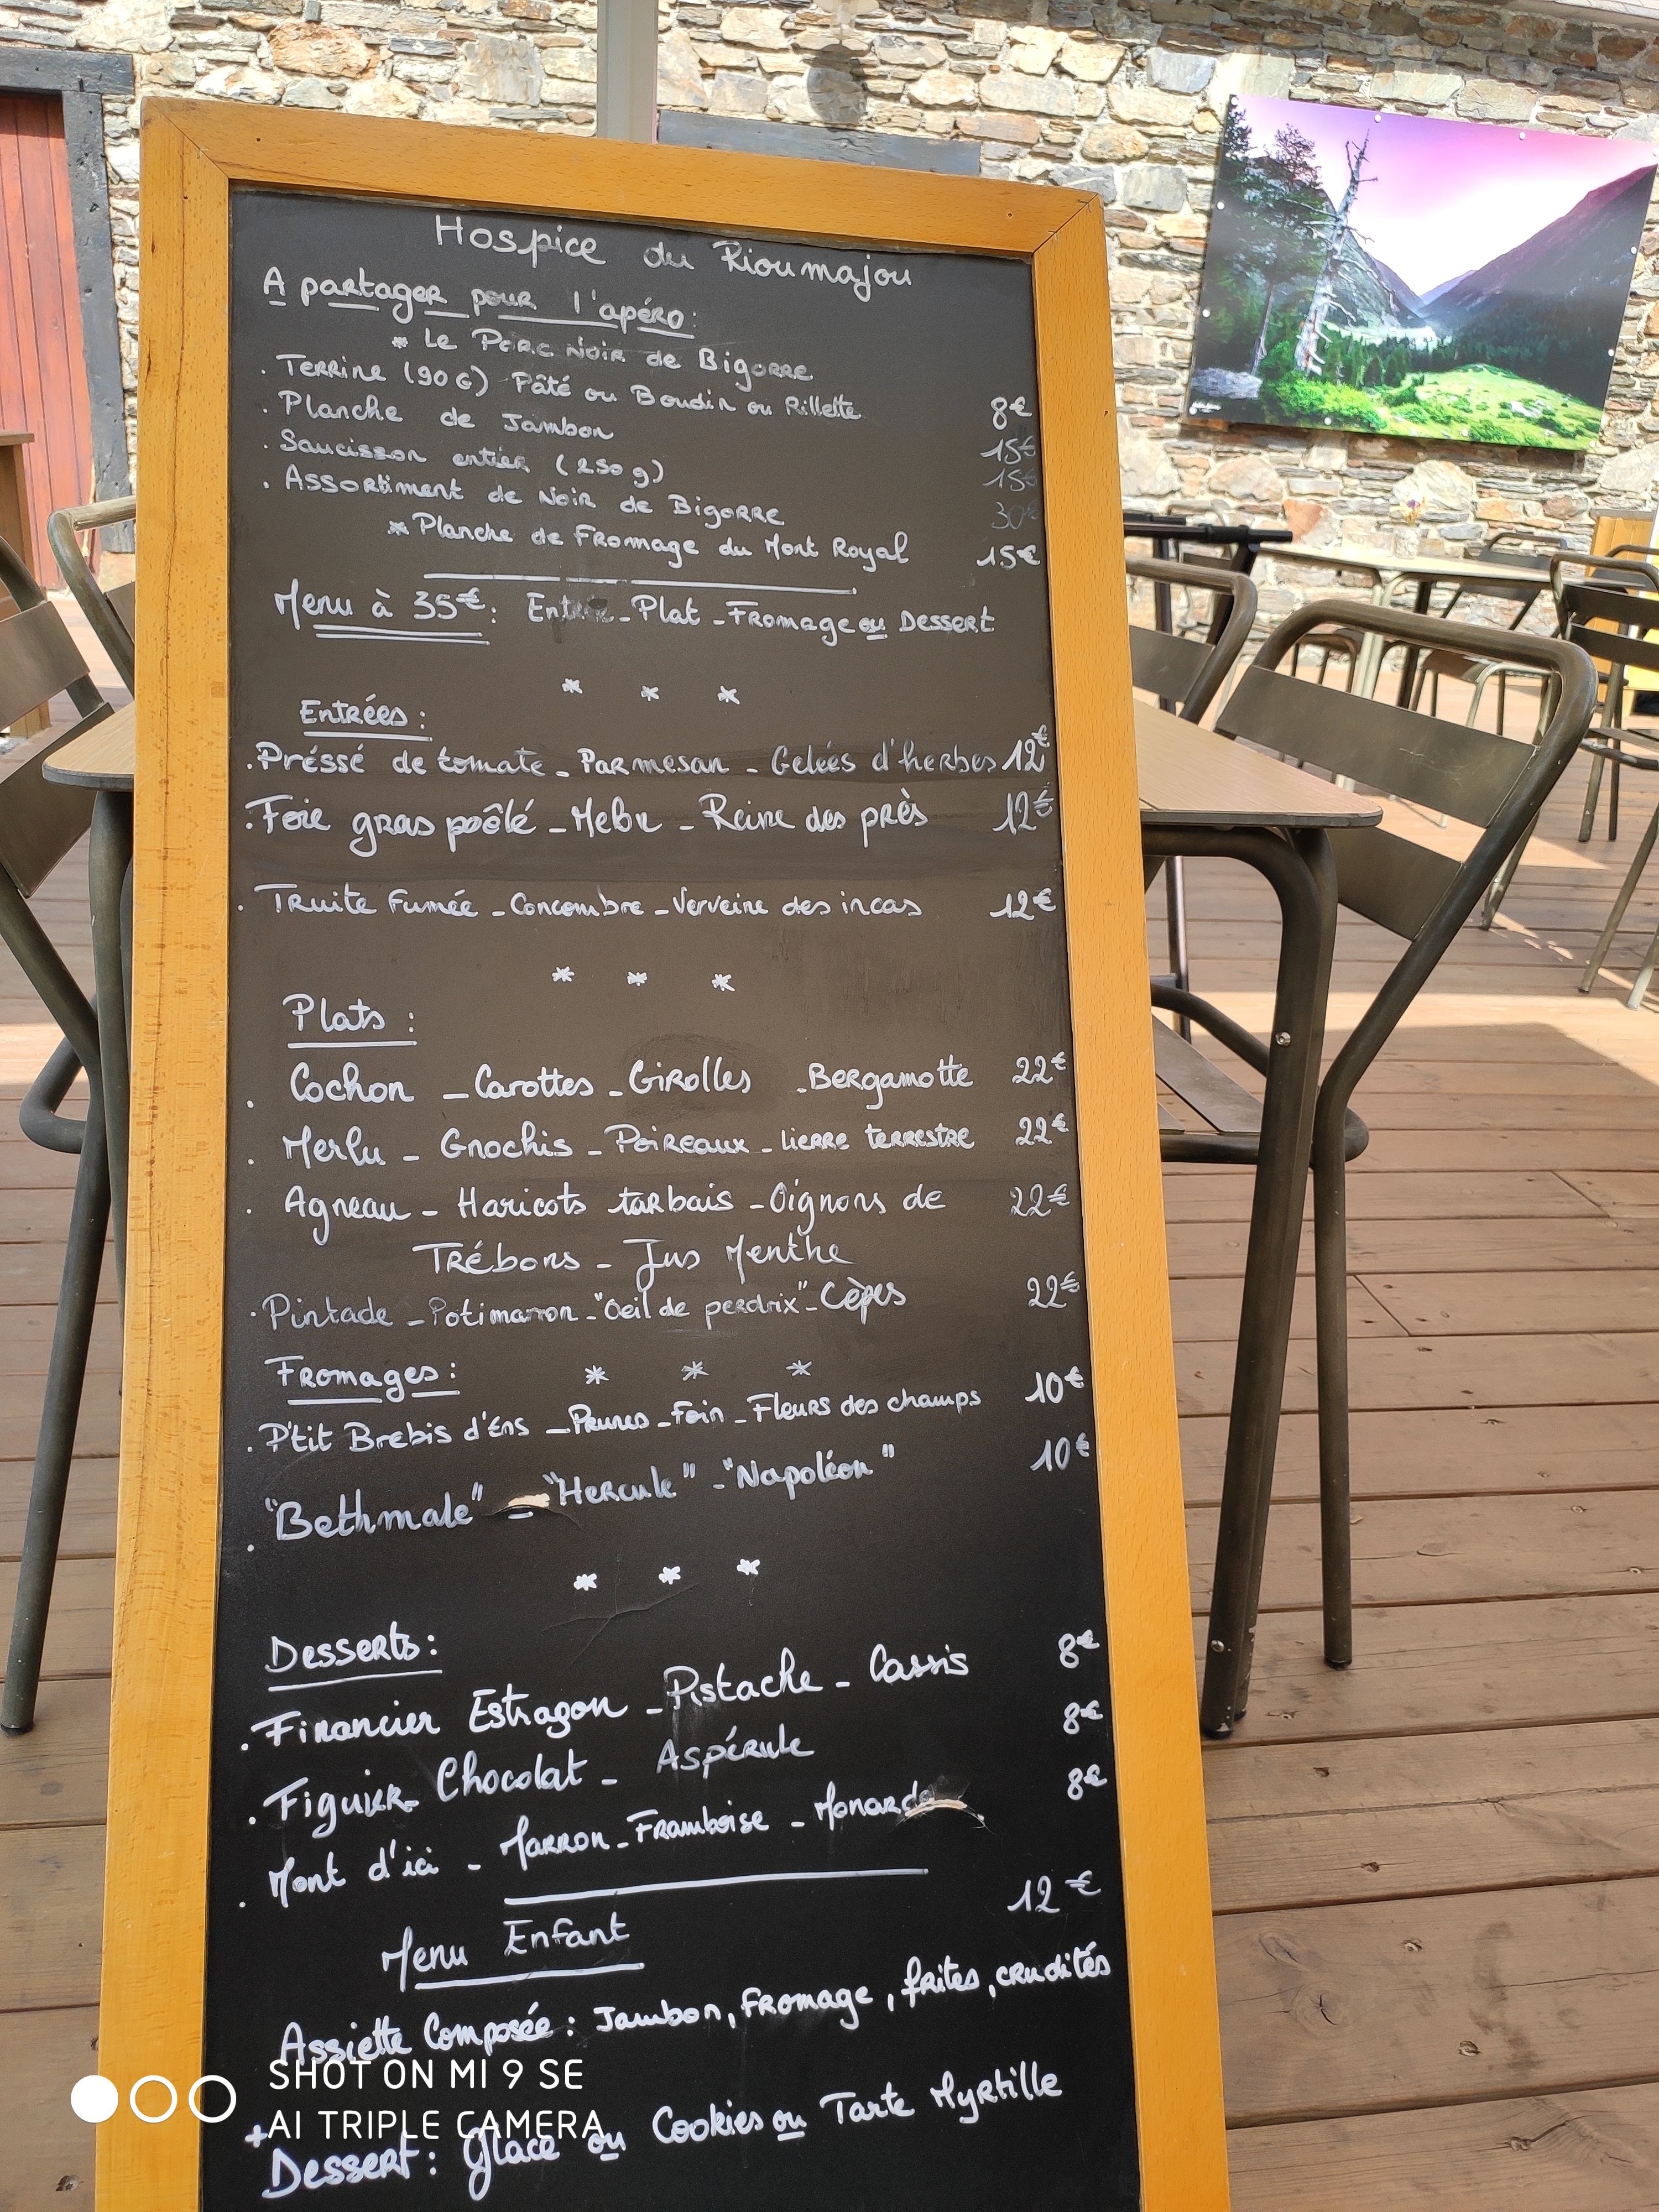 Hospice du Rioumajou
A partager pour l'apéro:
* Le Porc Noir de Bigorre
. Terrine (90 G) Pâté ou Boudin ou Rillette 8€
. Planche de Jambon 15€
. Saucisson entier (250 g) 15€
. Assortiment de Noir de Bigorre 30€
* Planche de Fromage du Mont Royal 15€
Menu à 35€: Entrée - Plat - Fromage ou Dessert
* * *
Entrées :
. Préssé de tomate - Parmesan - Gelées d'herbes 12€
. Foie gras poêlé - Melon - Reine des près 12€
. Truite Fumée - Concombre - Verveine des incas 12€
* * *
Plats :
. Cochon - Carottes - Girolles - Bergamotte 22€
. Merlu - Gnochis - Poireaux - lierre terrestre 22€
. Agneau - Haricots tarbais - Oignons de 22€
Trébons - Jus Menthe
. Pintade - Potimarron - "Oeil de perdrix" - Cèpes 22€
Fromages : * * *
. P'tit Brebis d'Ens - Prunes - Foin - Fleurs des champs 10€
. "Bethmale" - "Hercule" - "Napoléon" 10€
* * *
Desserts :
. Financier Estragon - Pistache - Cassis 8€
. Figuier - Chocolat - Aspérule 8€
. Mont d'ici - Marron - Framboise - Monarde 8€
Menu Enfant 12€
Assiette Composée : Jambon, fromage, frites, crudités
SHOT ON MI 9 SE
AI TRIPLE CAMERA
+ Dessert : Glace ou Cookies ou Tarte Myrtille